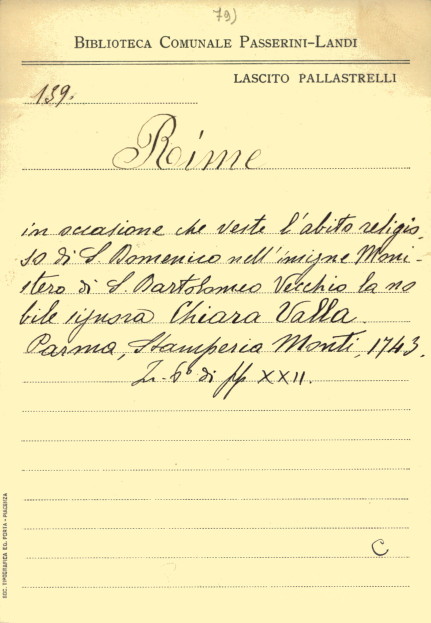 79)
BIBLIOTECA COMUNALE PASSERINI-LANDI
LASCITO PALLASTRELLI
139.
Rime
in occasione che veste l'abito religio-
so di S. Domenico nell'insigne Moni-
stero di S. Bartolomeo Vecchio la no
bile signora Chiara Valla.
Parma, Stamperia Monti, 1743.
In-6º di pp XXII.
C
SOC. TIPOGRAFICA ED. PORTA - PIACENZA